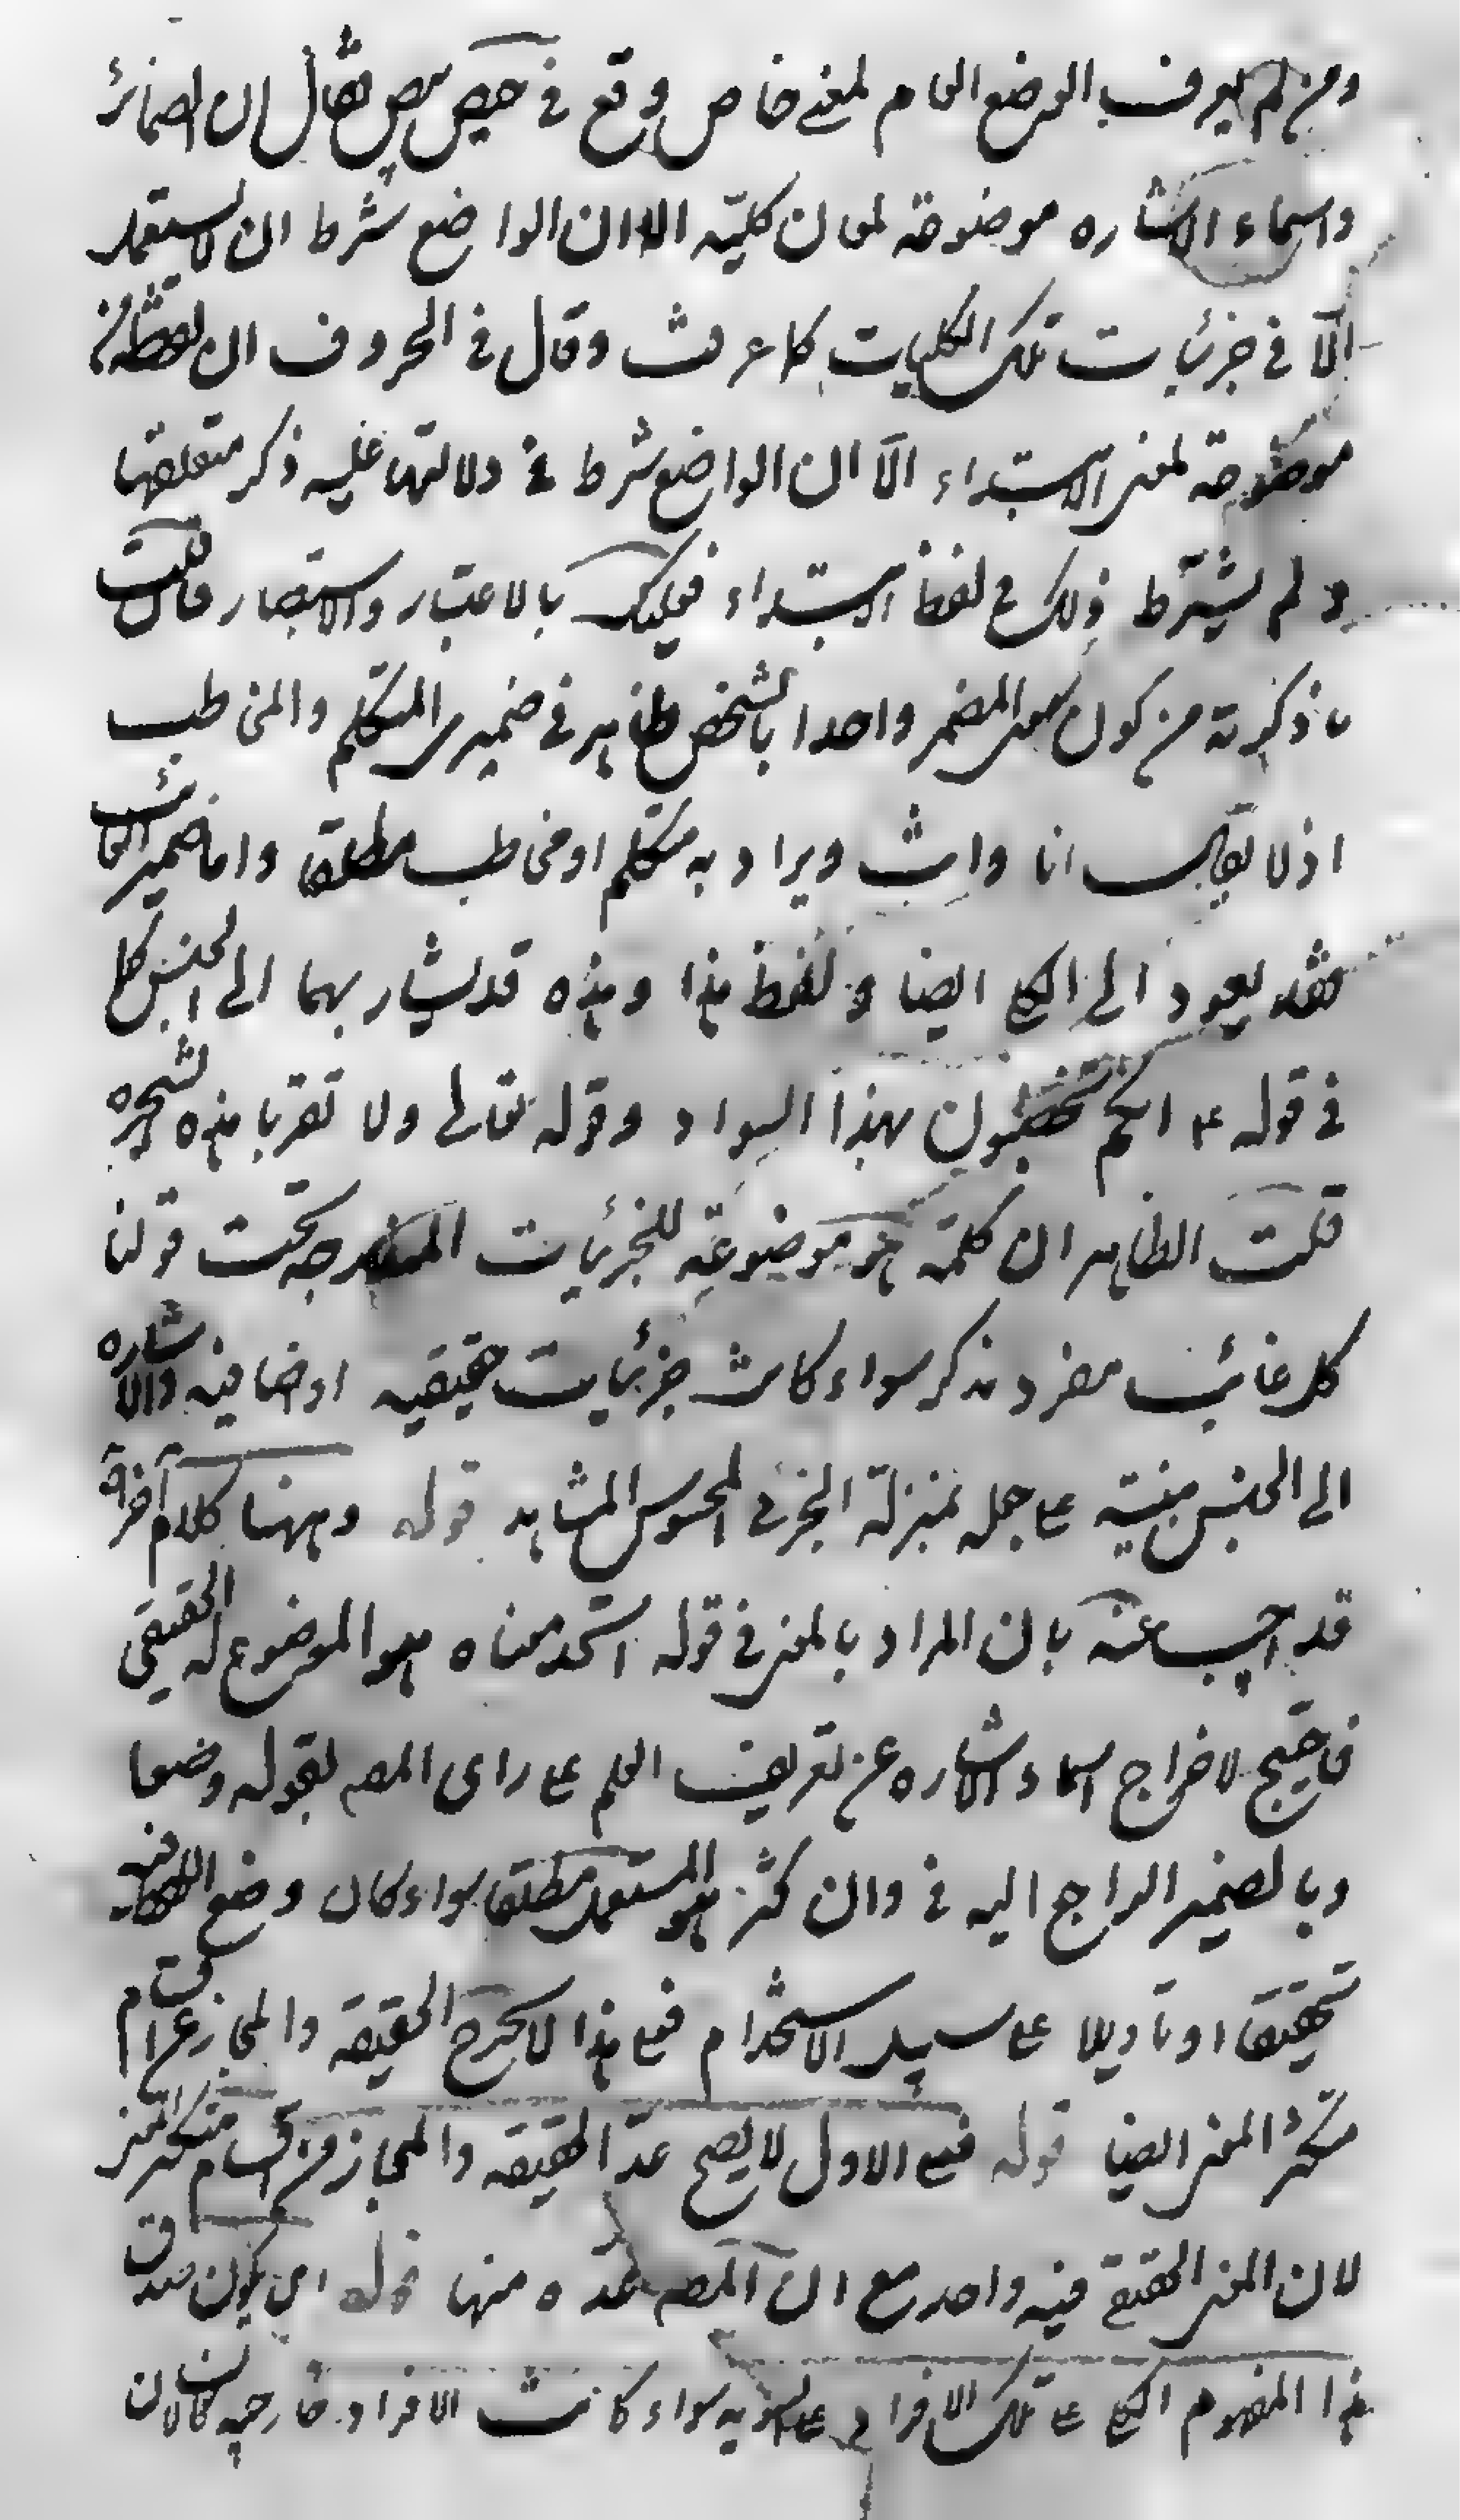 ومن لم يعرف الوضع العام لمعنى خاص وقع فى حيص بيص فقال ان الضمائر
واسماء الاشاره موضوعة لمعان كليّه الا ان الواضع شرط ان لا يستعمل
الّا فى جزئيات تلك الكليات كما عرفت وقال فى الحروف ان لفظة من
موضوعة لمعنى الابتداء الّا ان الواضع شرط فى دلالتها عليه ذكر متعلقها
و لم يشترط ذلك فى لفظ الابتداء فعليك بالاعتبار والاستبصار فان قلت
ما ذكرته من كون معنى المضمر واحدا بالشخص ظاهر فى ضميرى المتكلم والمخاطب
اذ لا يقال انا وانت ويراد به متكلم او مخاطب مطلقا واما ضمير الغائب
فقد يعود الى الكلى ايضا و لفظ هذا وهذه قد يشار بهما الى الجنس كما
فى قوله ع انكم تختضبون بهذا السواد وقوله تعالى ولا تقربا هذه الشجره
قلت الظاهر ان كلمة هو موضوعة للجزئيات المندرجه تحت قولنا
كل غائب مفرد مذكر سواء كانت جزئيات حقيقيه او اضافيه والاشاره
الى الجنس مبنية على جعله بمنزلة الجزئى المحسوس المشاهد قوله وههنا كلام آخر اه
قد اجيب عنه بان المراد بالمعنى فى قوله اتحد معناه هو الموضوع له الحقيقى
فاحتيج لاخراج اسماء الاشاره عن تعريف العلم على راى المصه بقوله وضعا
وبالضمير الراجع اليه فى وان كثر هو المستعمل مطلقا سواء كان وضع اللفظ فيه
تحقيقا او تاويلا على سبيل الاستخدام فعلى هذا لا يخرج الحقيقة والمجاز عن اقسام
متكثر المعنى ايضا قوله فعلى الاول لا يصح عدّ الحقيقه والمجاز من اقسام متكثر المعنى
لان المعنى الحقيقى فيه واحد مع ان المصه عدّه منها قوله اى يكون صدق
هذا المفهوم الكلى على تلك الافراد على السويه سواء كانت الافراد خارجيه كالانسان